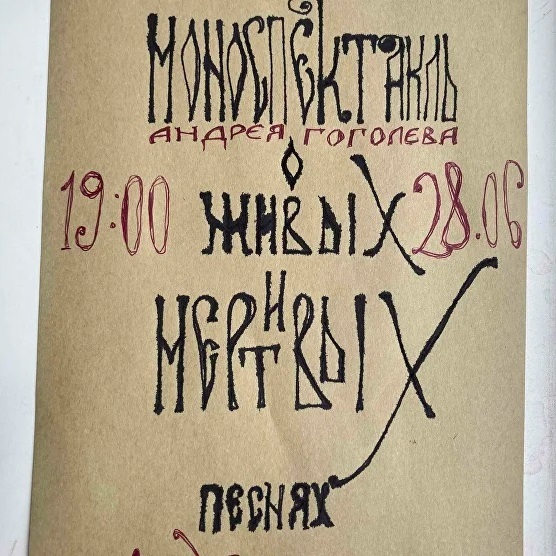 МОНОСПЕКТАКЛЬ
АНДРЕЯ ГОГОЛЕВА
О
19:00 ЖИВЫХ 28.06
И
МЕРТВЫХ
ПЕСНЯХ